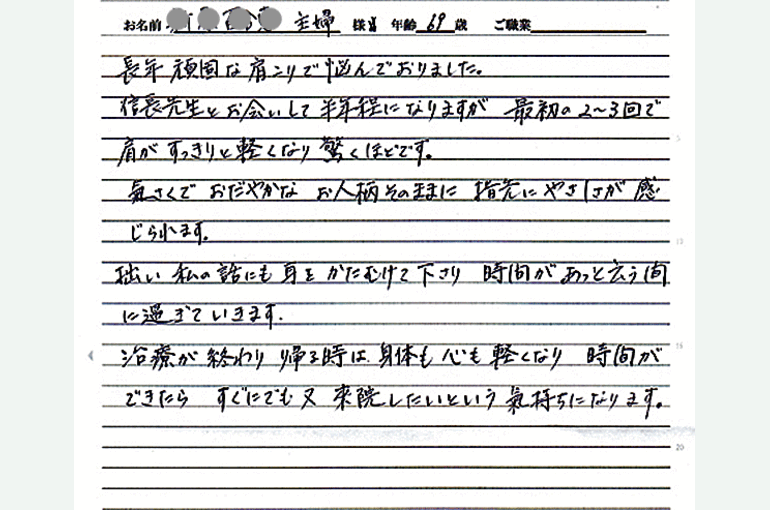 お名前 主婦 様 年齢 69 歳 ご職業
長年 頑固な肩こりで悩んでおりました。
信長先生とお会いして半年程になりますが 最初の2〜3回で
肩がすっきりと軽くなり驚くほどです。
氣さくでおだやかな お人柄そのままに 指先にやさしさが感
じられます。
拙い私の話にも身をかたむけて下さり 時間があっと言う間
に過ぎていきます.
治療が終わり帰る時は、身体も心も軽くなり 時間が
できたら すぐにでも又来院したいという氣持ちになります。
5
15
20